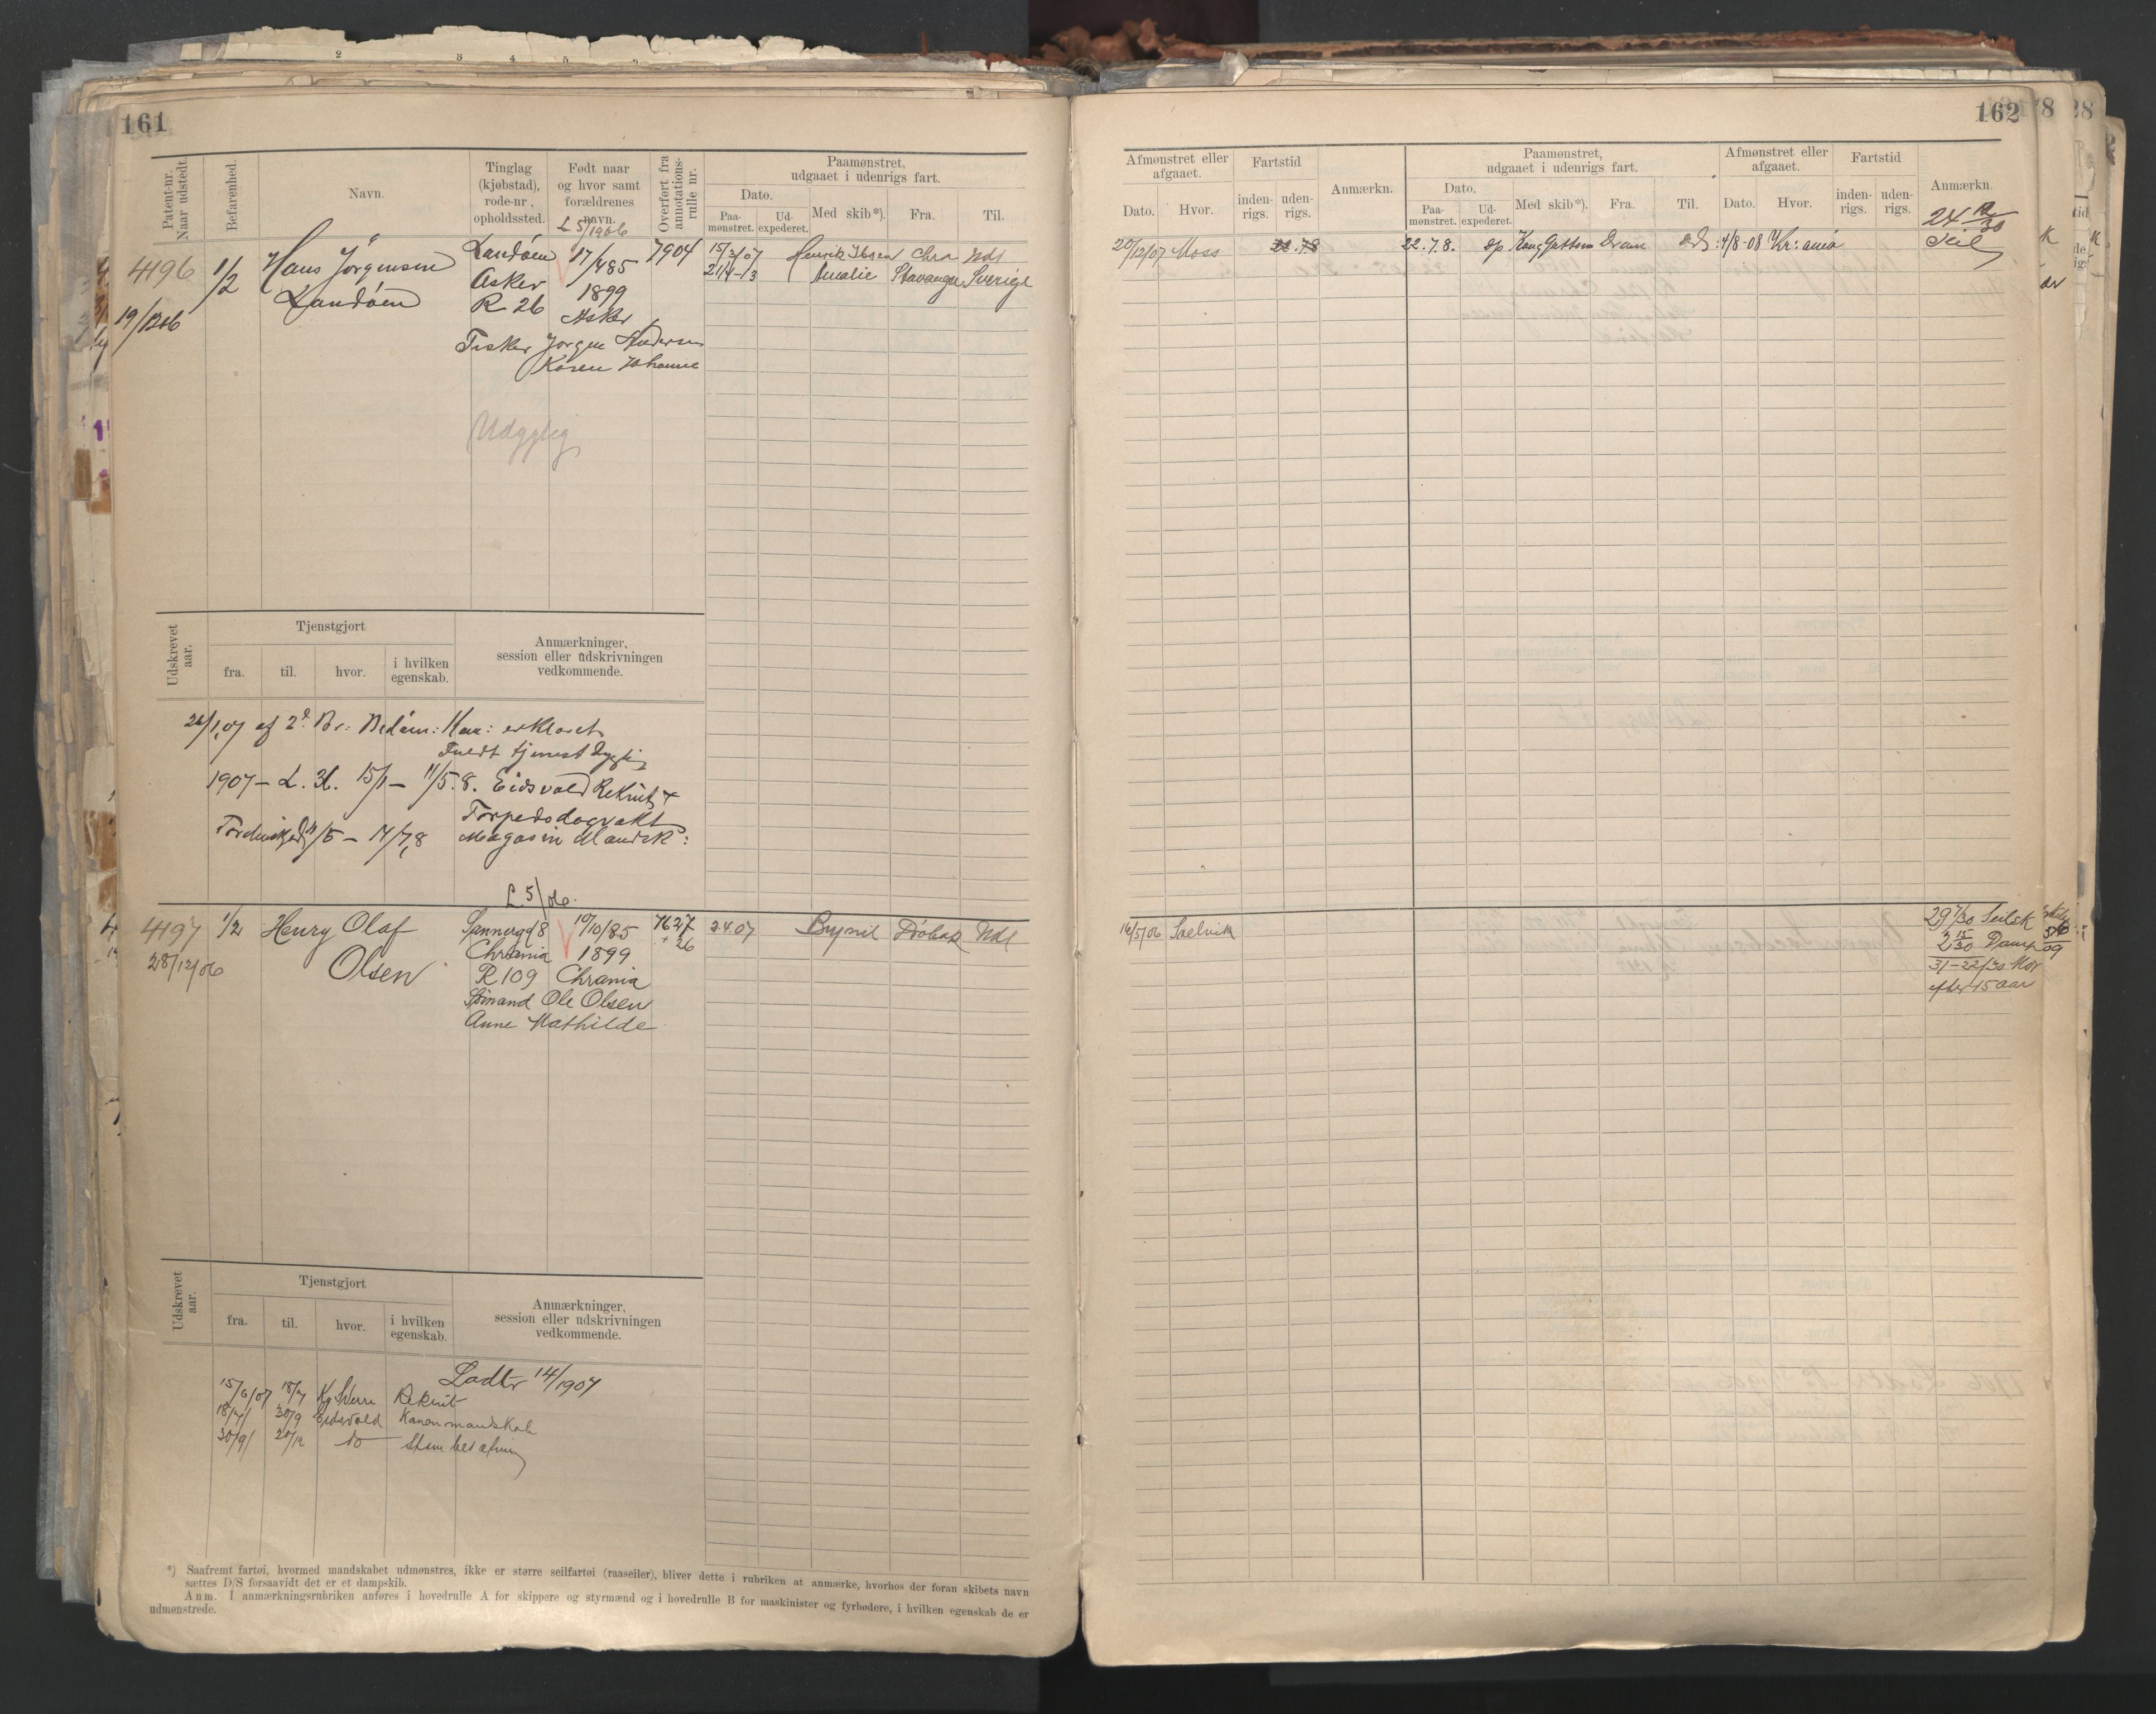 161
Patent-nr. Naar udstedt.
Befarenhed.
Navn.
Tinglag (kjøbstad), rode-nr., opholdssted.
Født naar og hvor samt forældrenes navn.
Overført fra annotations-rulle nr.
Paamønstret, udgaaet i udenrigs fart.
Dato.
Paa-mønstret.
Ud-expederet.
Med skib*).
Fra.
Til.
L 5/1906
4196
19/1206
1/2
Hans Jørgensen
Landøen
Landøen
Asker
R 26
17/485
1899
Asker
Fisker Jørgen Andersen
Karen Johanne
7904
15/3/07 Henrik Ibsen Chra Ndl
21/4-13 Amalie Stavanger Sverige
Udygtig
Udskrevet aar.
Tjenstgjort
fra.
til.
hvor.
i hvilken egenskab.
Anmærkninger, session eller udskrivningen vedkommende.
af 2 Br: Bedøm: Kom: erklæret
Fuldt tjenestdygtig
1907 - L. 31. 15/1 - 11/5.8. Eidsvold Rekrut
Torpedodagvakt
11/5 - 14/7.8 Magasin Mandsk:
L 5/06.
4197
28/12/06
1/2
Henry Olaf
Olsen
Spannergd 8
Chrania
R 109
10/10/85
1899
Chrania
Sømand Ole Olsen
Anne Mathilde
7627
+ 26
2.4.07 Brynil Drøbak Ndl
Udskrevet aar.
Tjenstgjort
fra.
til.
hvor.
i hvilken egenskab.
Anmærkninger, session eller udskrivningen vedkommende.
14/1907
15/6/07 18/7 Kg Sverre Rekrut
18/7/ 30/9 Eidsvold Kanonmandskab
30/9/ 20/12 do
*) Saafremt fartøi, hvormed mandskabet udmønstres, ikke er større seilfartøi (raaseiler), bliver dette i rubriken at anmærke, hvorhos der foran skibets navn
sættes D/S forsaavidt det er et dampskib.
Anm. I anmærkningsrubriken anføres i hovedrulle A for skippere og styrmænd og i hovedrulle B for maskinister og fyrbødere, i hvilken egenskab de er
udmønstrede.
162
Afmønstret eller afgaaet.
Dato.
Hvor.
Fartstid
inden-rigs.
uden-rigs.
Anmærkn.
Paamønstret, udgaaet i udenrigs fart.
Dato.
Paa-mønstret.
Ud-expederet.
Med skib*).
Fra.
Til.
Afmønstret eller afgaaet.
Dato.
Hvor.
Fartstid
inden-rigs.
uden-rigs.
Anmærkn.
24 12/30
Seil
20/12/07 Moss
22.7.8. Dram 4/8-08 Kr:ania
16/5/06 Saelvik
29 7/30 Seilsk
2 15/30 Damp
31-22/30 Mdr
efter 15 aar